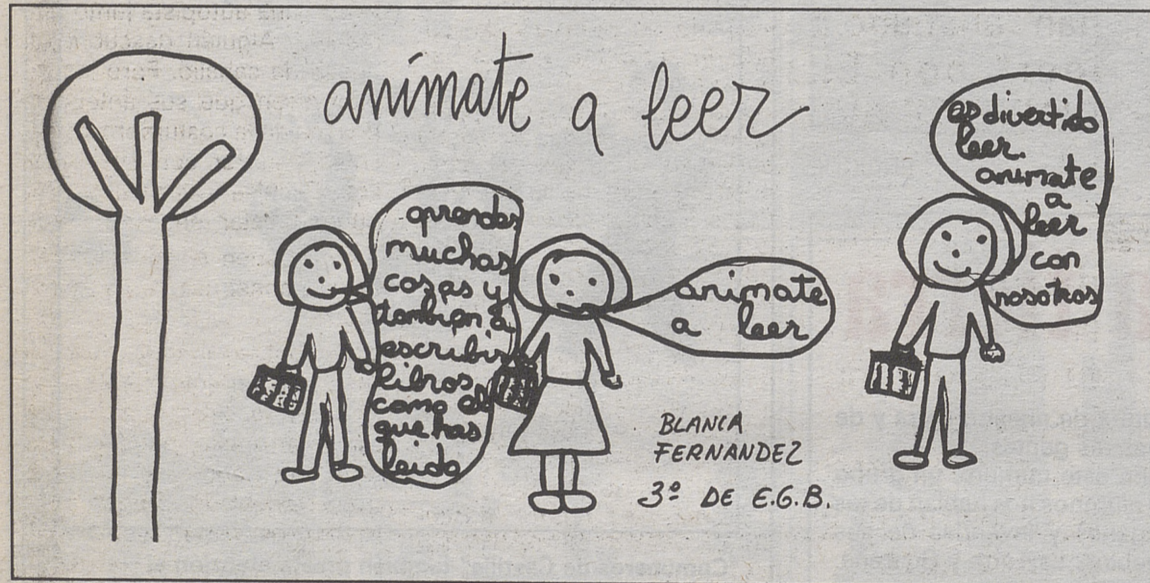 animate a leer
aprendes
muchas
cosas y
tambien a
escribir
libros
como el
que has
leido
animate
a leer
es divertido
leer.
animate
a
leer
con
nosotros
BLANCA
FERNANDEZ
3º DE E.G.B.